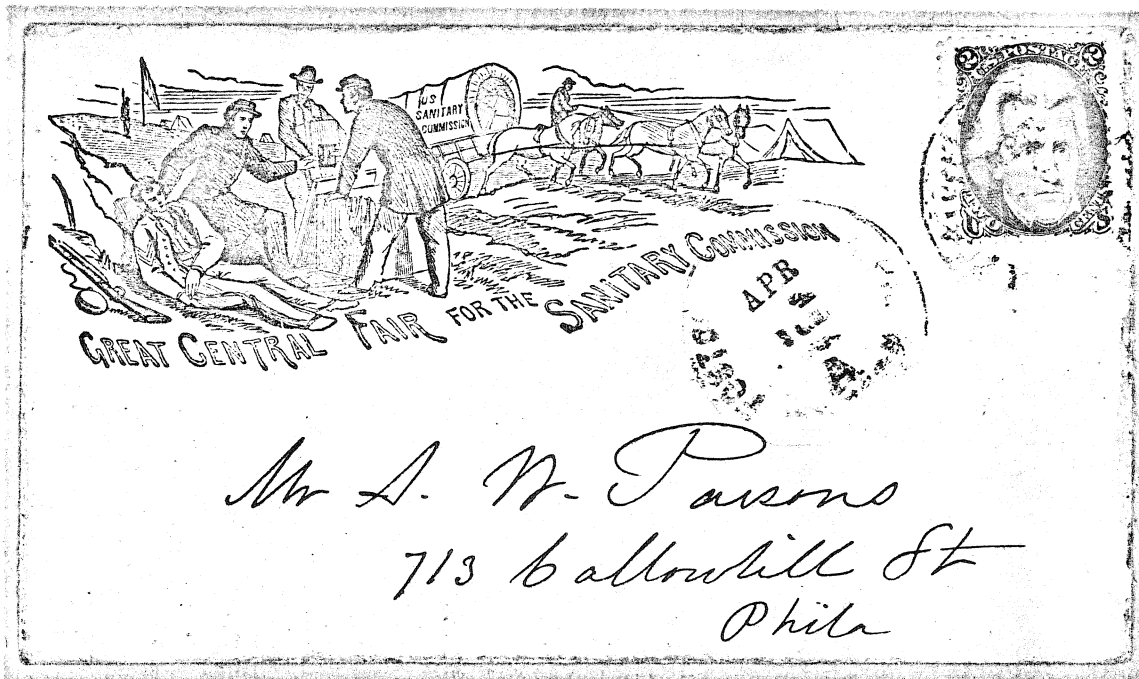 US
SANITARY
COMMISSION
GREAT CENTRAL FAIR FOR THE SANITARY COMMISSION
2 U.S. POSTAGE 2
APR
A
Mr S. W. Parsons
713 Callowhill St
Phila